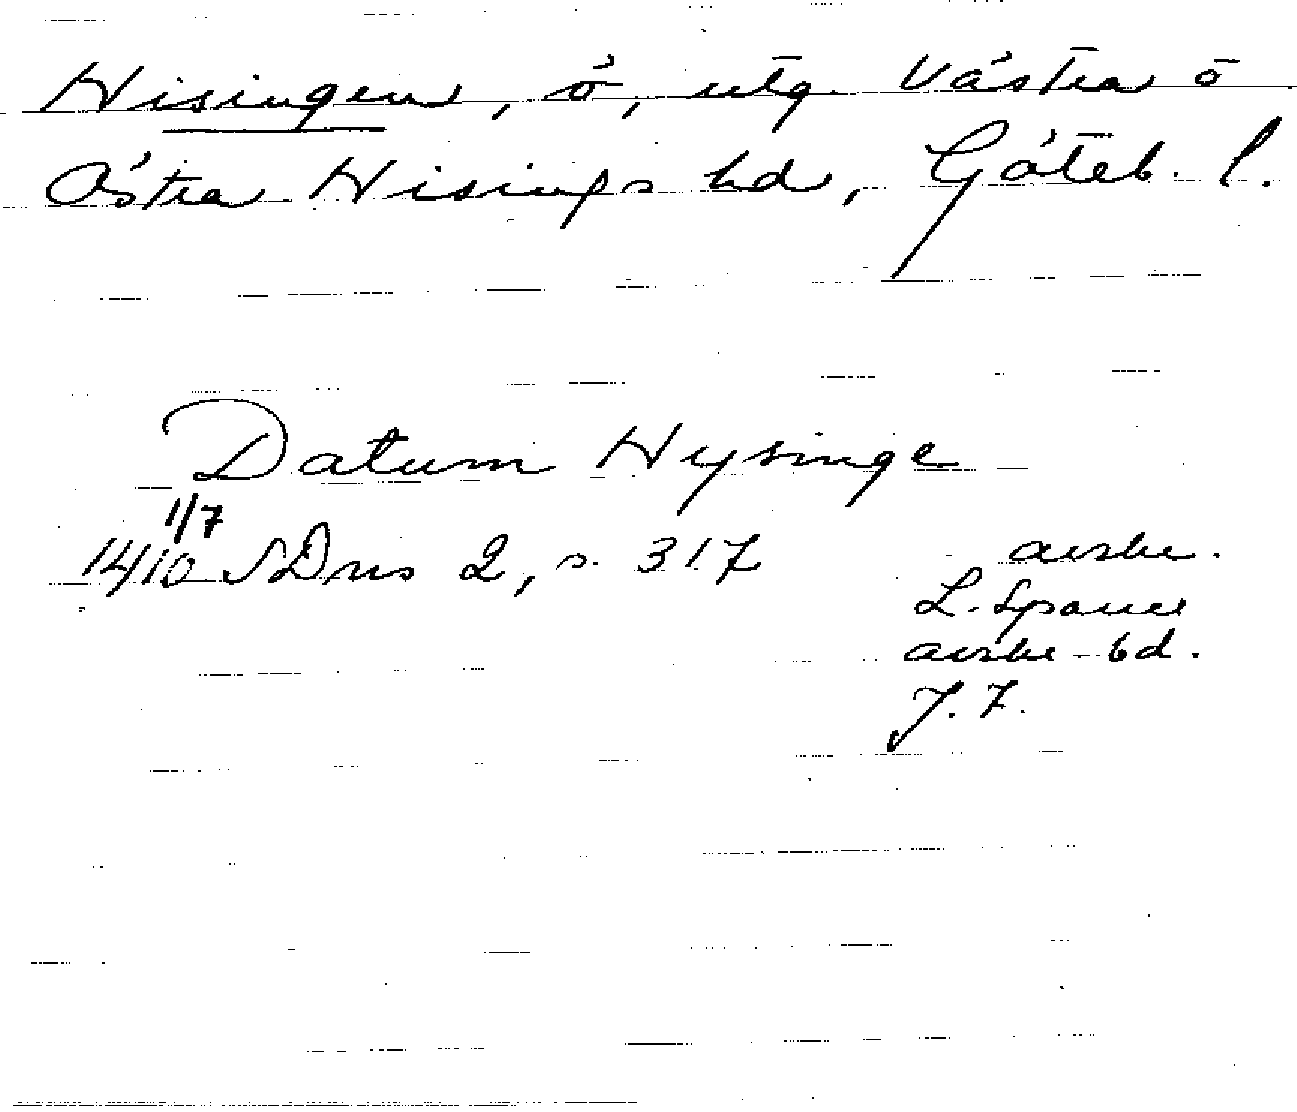 Hisingen, ö, utg. Västra o
Östra Hisings hd, Göteb. l.
Datum Hysinge
1/7
1410 SDns 2, s. 317
avskr.
L. Sparres
avskr. bd.